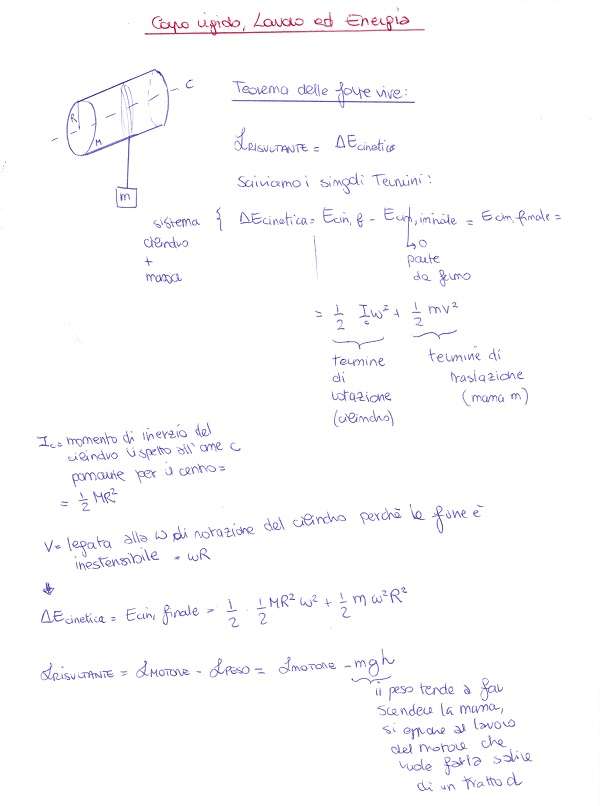 Corpo rigido, Lavoro ed Energia
C
R
M
m
Teorema delle forze vive:
LRISULTANTE = ΔEcinetica
Scriviamo i singoli Termini:
sistema { ΔEcinetica = Ecin, f - Ecin, iniziale = Ecin, finale =
cilindro
+
massa
↳ 0
parte
da fermo
= 1/2 Icω² + 1/2 mv²
termine
di
rotazione
(cilindro)
termine di
traslazione
(massa m)
Ic = momento di inerzia del
cilindro rispetto all'asse C
passante per il centro =
= 1/2 MR²
V = legata alla ω di rotazione del cilindro perchè la fune è
inestensibile = ωR
ΔEcinetica = Ecin, finale = 1/2 · 1/2 MR² ω² + 1/2 m ω²R²
LRISULTANTE = LMOTORE - LPESO = LMOTORE - mgh
il peso tende a far
scendere la massa,
si oppone al lavoro
del motore che
vuole farla salire
di un tratto d